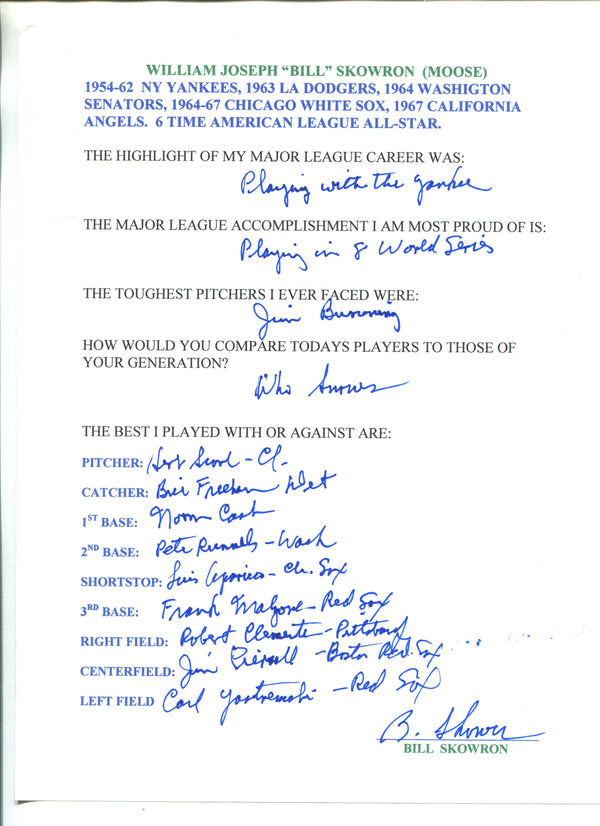 WILLIAM JOSEPH “BILL” SKOWRON (MOOSE)
1954-62 NY YANKEES, 1963 LA DODGERS, 1964 WASHIGTON
SENATORS, 1964-67 CHICAGO WHITE SOX, 1967 CALIFORNIA
ANGELS. 6 TIME AMERICAN LEAGUE ALL-STAR.
THE HIGHLIGHT OF MY MAJOR LEAGUE CAREER WAS:
Playing with the Yankee
THE MAJOR LEAGUE ACCOMPLISHMENT I AM MOST PROUD OF IS:
Playing in 8 World Series
THE TOUGHEST PITCHERS I EVER FACED WERE:
Jim Bunning
HOW WOULD YOU COMPARE TODAYS PLAYERS TO THOSE OF
YOUR GENERATION?
Who knows
THE BEST I PLAYED WITH OR AGAINST ARE:
PITCHER: Herb Score - Cl.
CATCHER: Bill Freehan Det
1ST BASE: Norm Cash
2ND BASE: Pete Runnels - Wash
SHORTSTOP: Luis Aparicio - Ch. Sox
3RD BASE: Frank Malzone - Red Sox
RIGHT FIELD: Robert Clemente - Pittsburg
CENTERFIELD: Jim Piersall - Boston Red Sox
LEFT FIELD Carl Yastremski - Red Sox
B. Skowron
BILL SKOWRON